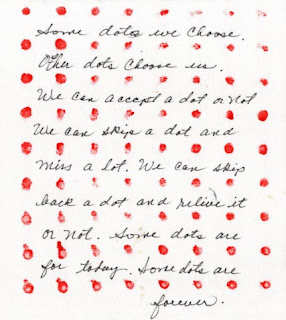 Some dots we choose.
Other dots choose us.
We can accept a dot or not
We can skip a dot and
miss a lot. We can skip
back a dot and relive it
or not. Some dots are
for today. Some dots are
forever.